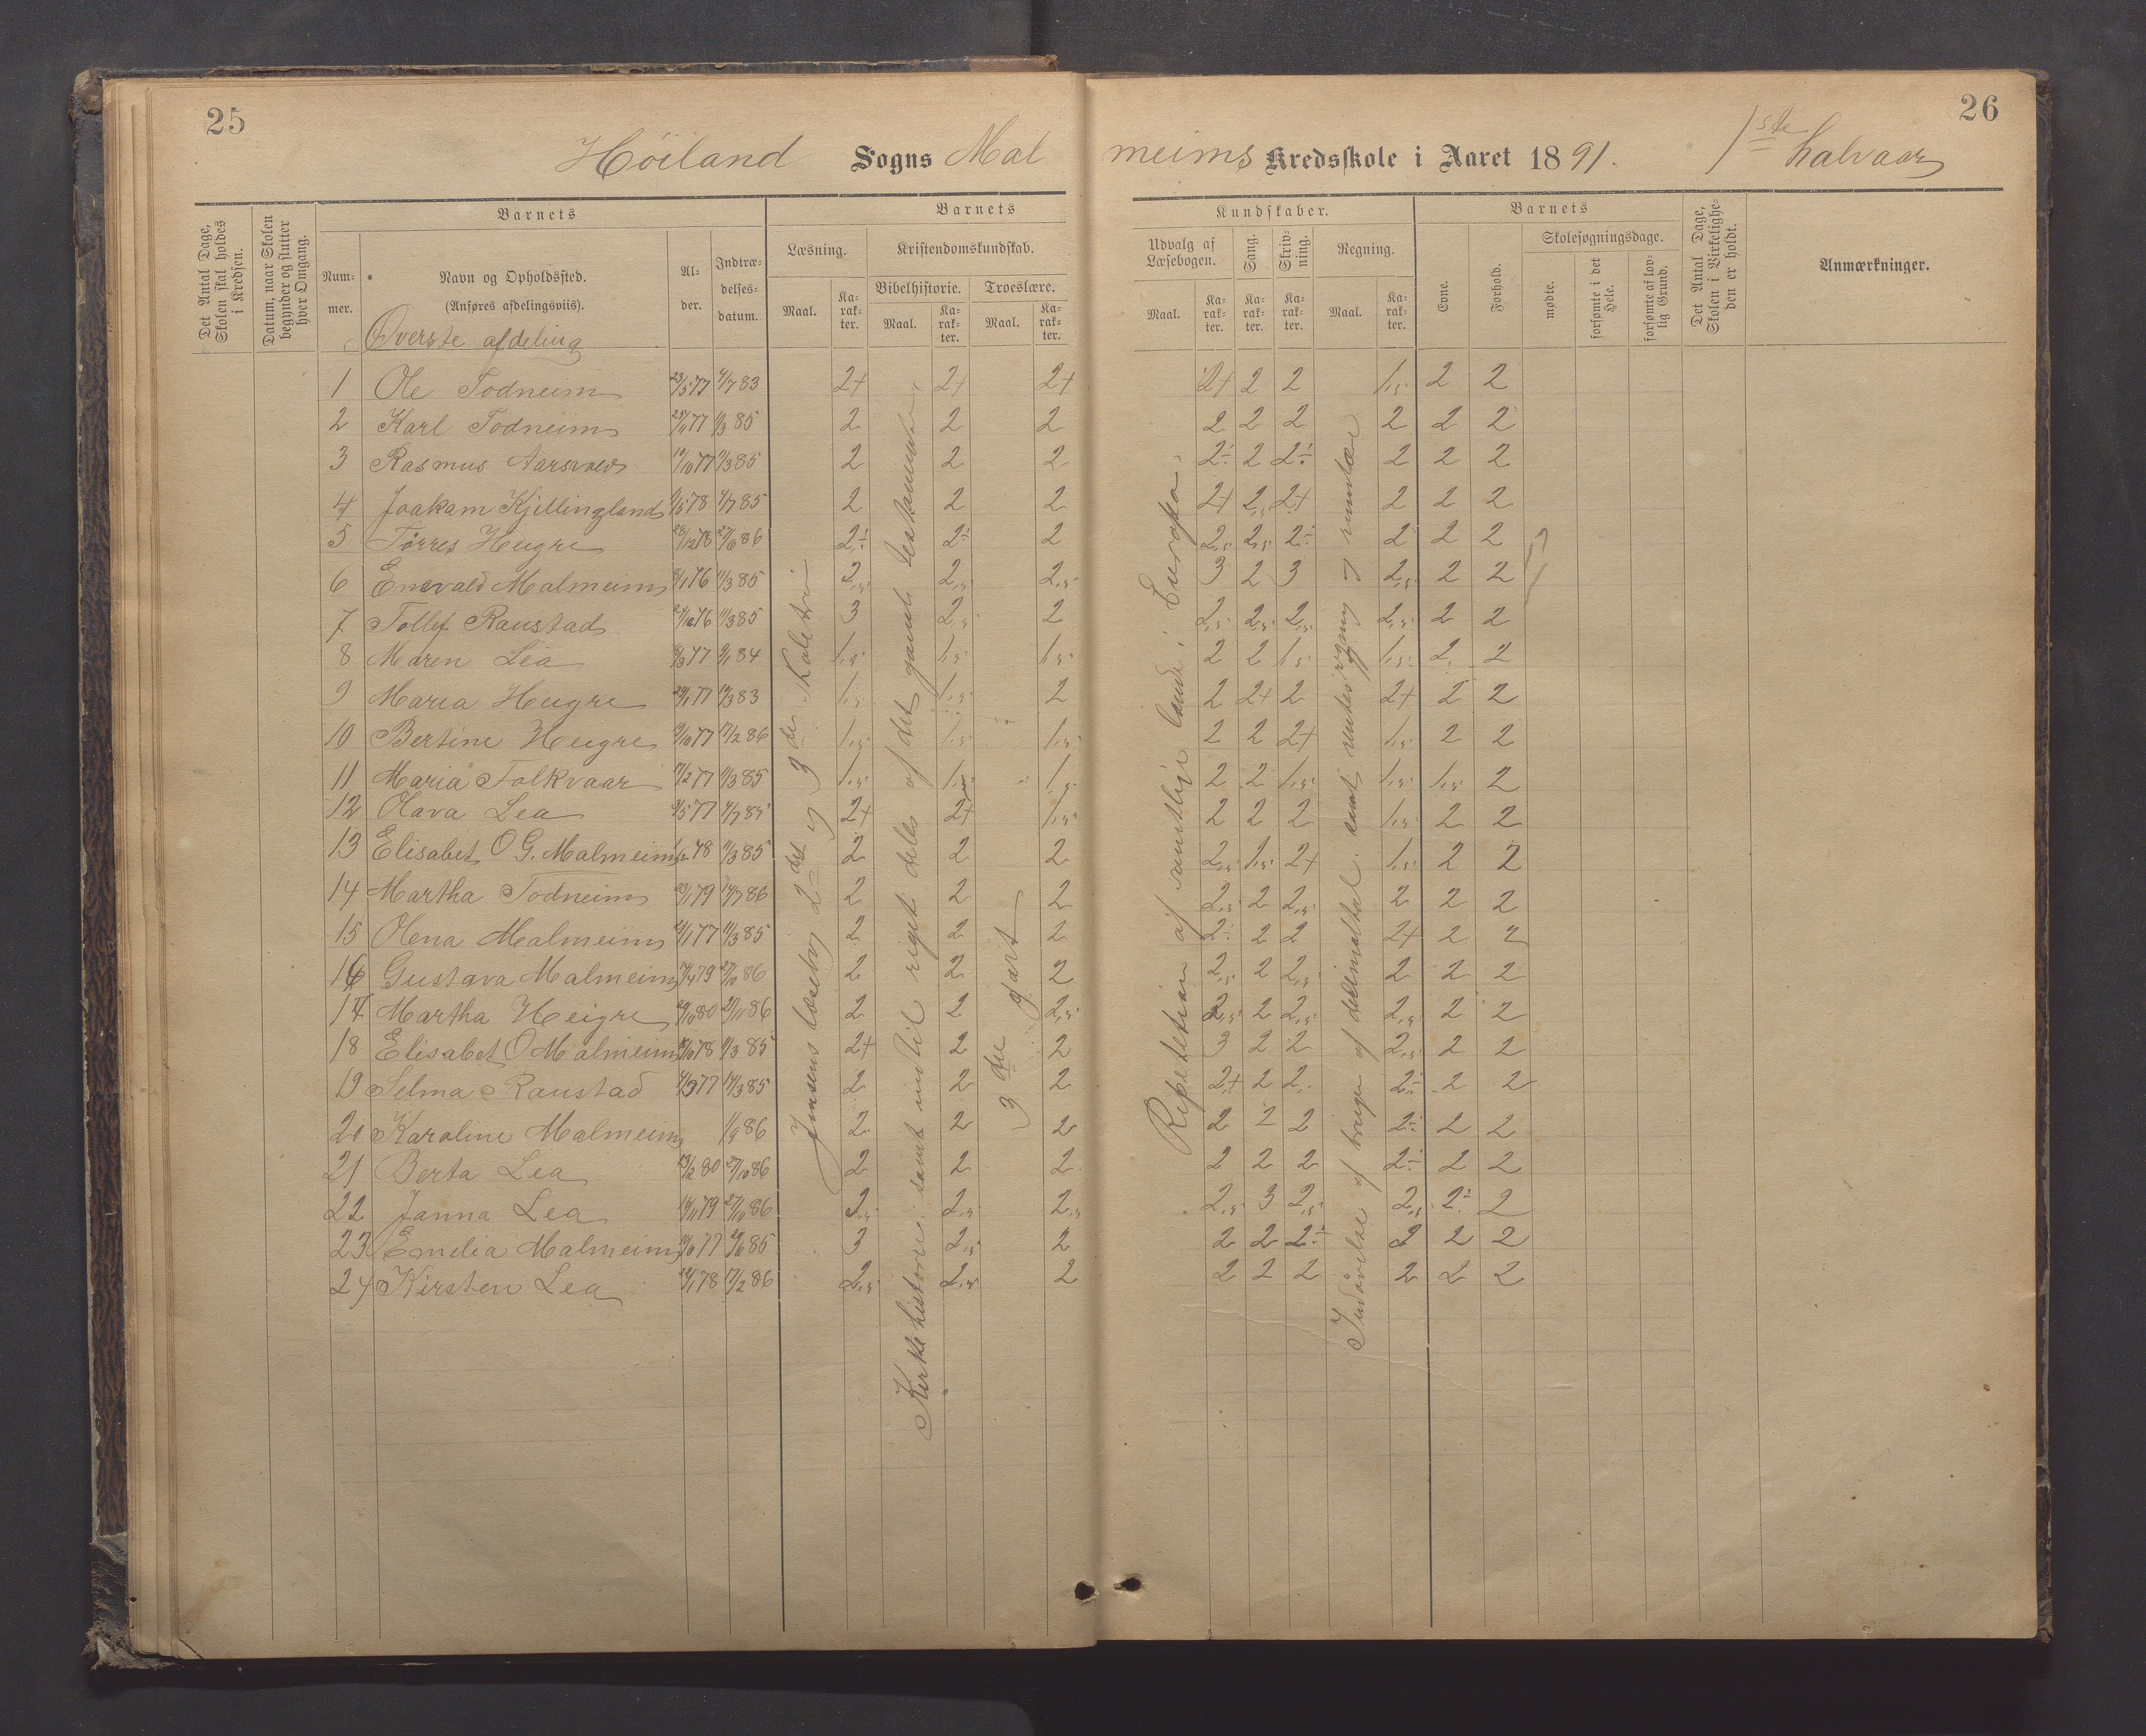 25
26
Höiland Sogns Mal
meims Kredsskole i Aaret 1891. 1ste halvaar
Det Antal Dage, Skolen skal holdes i Kredsen.
Datum, naar Skolen begynder og slutter hver Omgang.
Barnets
Barnets
Kundskaber.
Barnets
Det Antal Dage, Skolen i Virkeligheden er holdt.
Anmærkninger.
Nummer.
Navn og Opholdssted.
(Anføres afdelingsviis).
Alder.
Indtrædelsesdatum.
Læsning.
Kristendomskundskab.
Bibelhistorie.
Troeslære.
Maal.
Karakter.
Maal.
Karakter.
Maal.
Karakter.
Udvalg af Læsebogen.
Sang.
Skrivning.
Regning.
Maal.
Karakter.
Karakter.
Karakter.
Maal.
Karakter.
Evne.
Forhold.
Skolesøgningsdage.
mødte.
forsømte i det Hele.
forsømte af lovlig Grund.
Overste afdeling
1 Ole Todneim 23/5 77 4/7 83 2+ 2+ 2+ 2+ 2 2 1,5 2 2
2 Karl Todneim 2 2 2 2 2 2 2 2 2
3 Rasmus Aarsvold 19/10 77 11/3 85 2 2 2 2÷ 2 2÷ 2 2 2
4 Joakam Kjellingland 4/7 85 2 2 2 2+ 2,5 2+ 2 2 2
5 Törres Heigre 28/12 78 2÷ 2÷ 2 2,5 2,5 2÷ 2 2 2
6 Enevald Malmeim 11/3 85 2,5 2,5 2,5 3 2 3 2,5 2 2
7 Tollef Raustad 11/3 85 3 2,5 2 2,5 2,5 2,5 2,5 2 2
8 Maren Lea 1,5 1,5 1,5 2 2 1,5 1,5 2 2
9 Maria Heigre 1,5 1,5 2 2 2+ 2 2+ 2 2
10 Bertine Heigre 17/2 86 1,5 1,5 1,5 2 2 2+ 1,5 2 2
11 Maria Folkvaar 17/2 77 11/3 85 1,5 1,5 1,5 2 2 1,5 1,5 1,5 2
12 Olava Lea 2+ 2+ 1,5 2 2 2 1,5 2 2
13 Elisabet O G. Malmeim 11/3 85 2 2 2 2,5 1,5 2+ 1,5 2 2
14 Martha Todneim 23/1 79 2 2 2 2,5 2 2,5 2 2 2
15 Olena Malmeim 11/3 85 2 2 2 2÷ 2 2 2+ 2 2
16 Gustava Malmeim 27/10 86 2 2 2 2,5 2 2,5 2 2 2
17 Martha Heigre 2 2 2,5 2,5 2 2,5 2,5 2 2
18 Elisabet O Malmeim 11/3 85 2+ 2 2 3 2 2 2,5 2 2
19 Selma Raustad 2 2 2 2+ 2 2 2÷ 2 2
20 Karoline Malmeim 1/9 86 2 2 2 2 2 2 2÷ 2 2
21 Berta Lea 27/10 86 2 2 2 2 2 2 2÷ 2 2
22 Janna Lea 27/10 86 2,5 2,5 2,5 2,5 3 2,5 2,5 2÷ 2
23 Emelia Malmeim 3 2,5 2 2 2 2÷ 2 2 2
24 Kirsten Lea 17/2 86 2,5 2,5 2 2 2 2 2 2 2
Jensens læsebog 2det og 3die skoletrin
Kirkehistorie, samt indtil riget deles af det gamle testamente,
3die part
Repetetion af samtlige lande i Europa.
Indövelse af brøger af dedimaltal samt